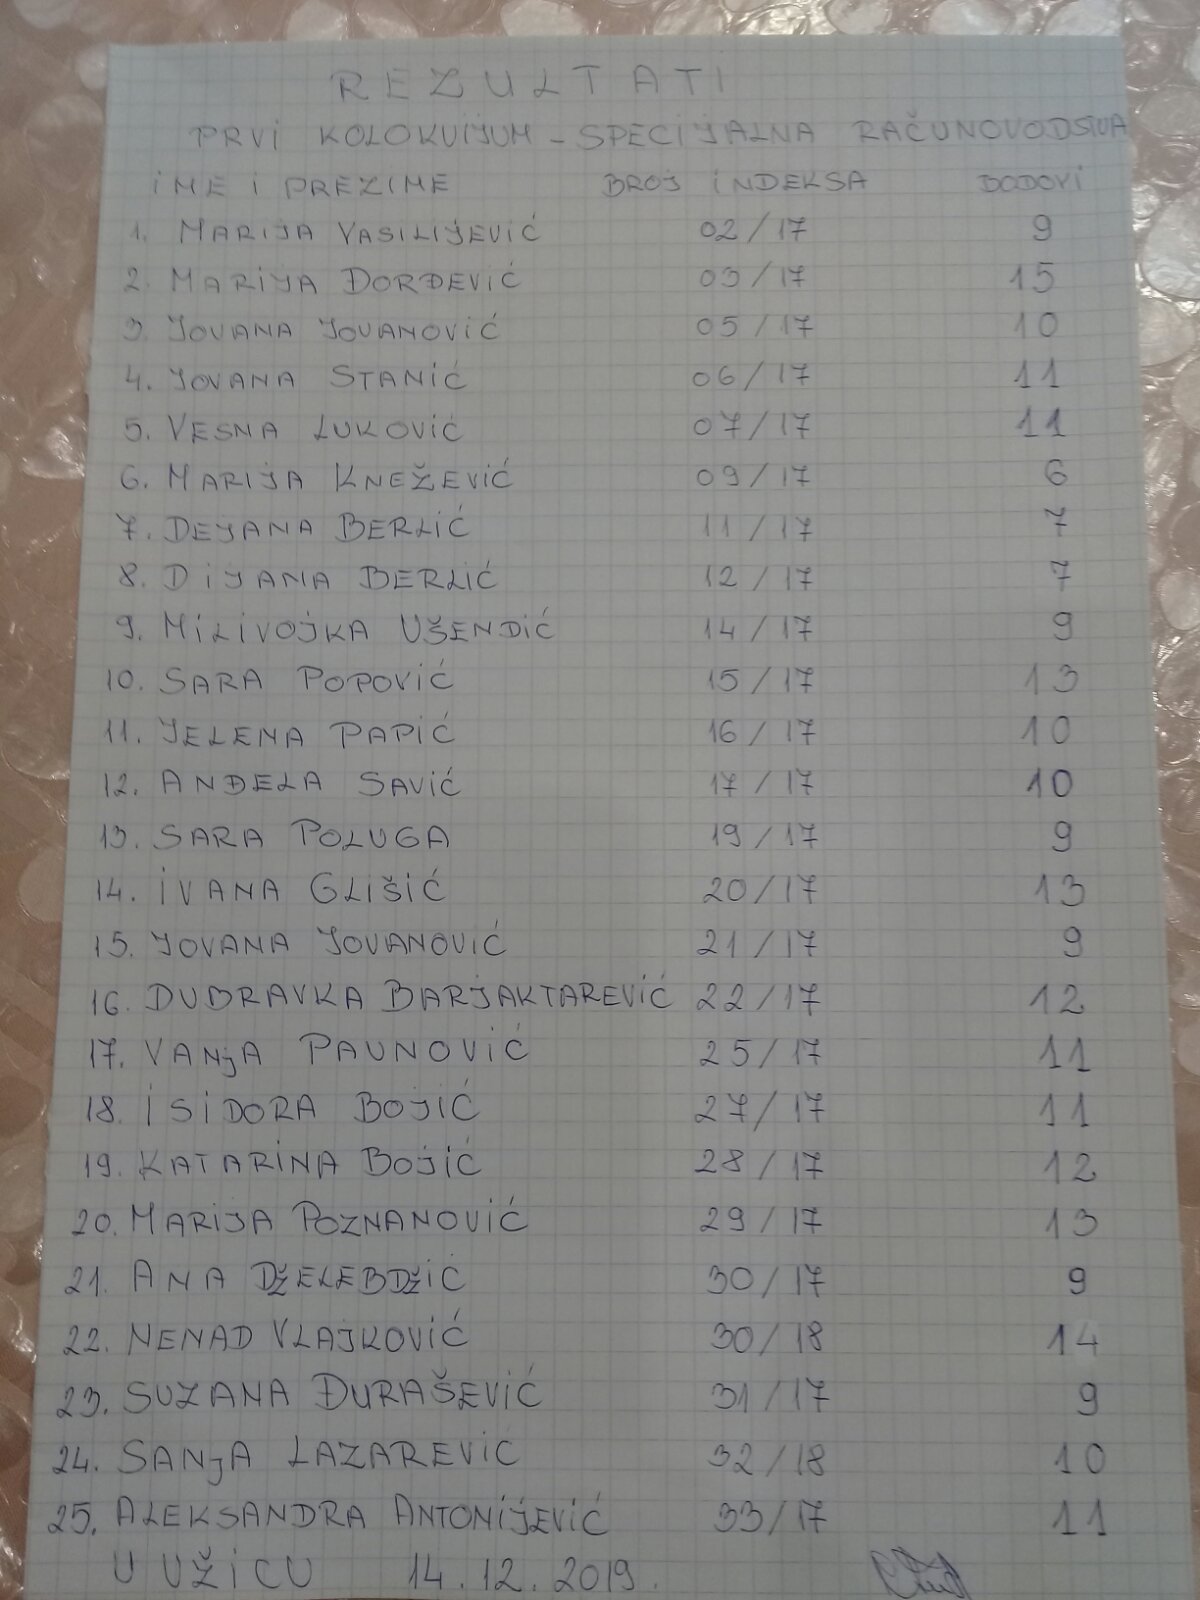 REZULTATI
PRVI KOLOKVIJUM - SPECIJALNA RAČUNOVODSTVA
IME I PREZIME BROJ INDEKSA BODOVI
1. MARIJA VASILIJEVIĆ 02/17 9
2. MARIJA ĐORĐEVIĆ 03/17 15
3. JOVANA JOVANOVIĆ 05/17 10
4. JOVANA STANIĆ 06/17 11
5. VESNA LUKOVIĆ 07/17 11
6. MARIJA KNEŽEVIĆ 09/17 6
7. DEJANA BERLIĆ 11/17 7
8. DIJANA BERLIĆ 12/17 7
9. MILIVOJKA UŠENDIĆ 14/17 9
10. SARA POPOVIĆ 15/17 13
11. JELENA PAPIĆ 16/17 10
12. ANĐELA SAVIĆ 17/17 10
13. SARA POLUGA 19/17 9
14. IVANA GLIŠIĆ 20/17 13
15. JOVANA JOVANOVIĆ 21/17 9
16. DUBRAVKA BARJAKTAREVIĆ 22/17 12
17. VANjA PAUNOVIĆ 25/17 11
18. ISIDORA BOJIĆ 27/17 11
19. KATARINA BOJIĆ 28/17 12
20. MARIJA POZNANOVIĆ 29/17 13
21. ANA DŽELEBDŽIĆ 30/17 9
22. NENAD VLAJKOVIĆ 30/18 14
23. SUZANA ĐURAŠEVIĆ 31/17 9
24. SANjA LAZAREVIĆ 32/18 10
25. ALEKSANDRA ANTONIJEVIĆ 33/17 11
U UŽICU 14.12.2019.